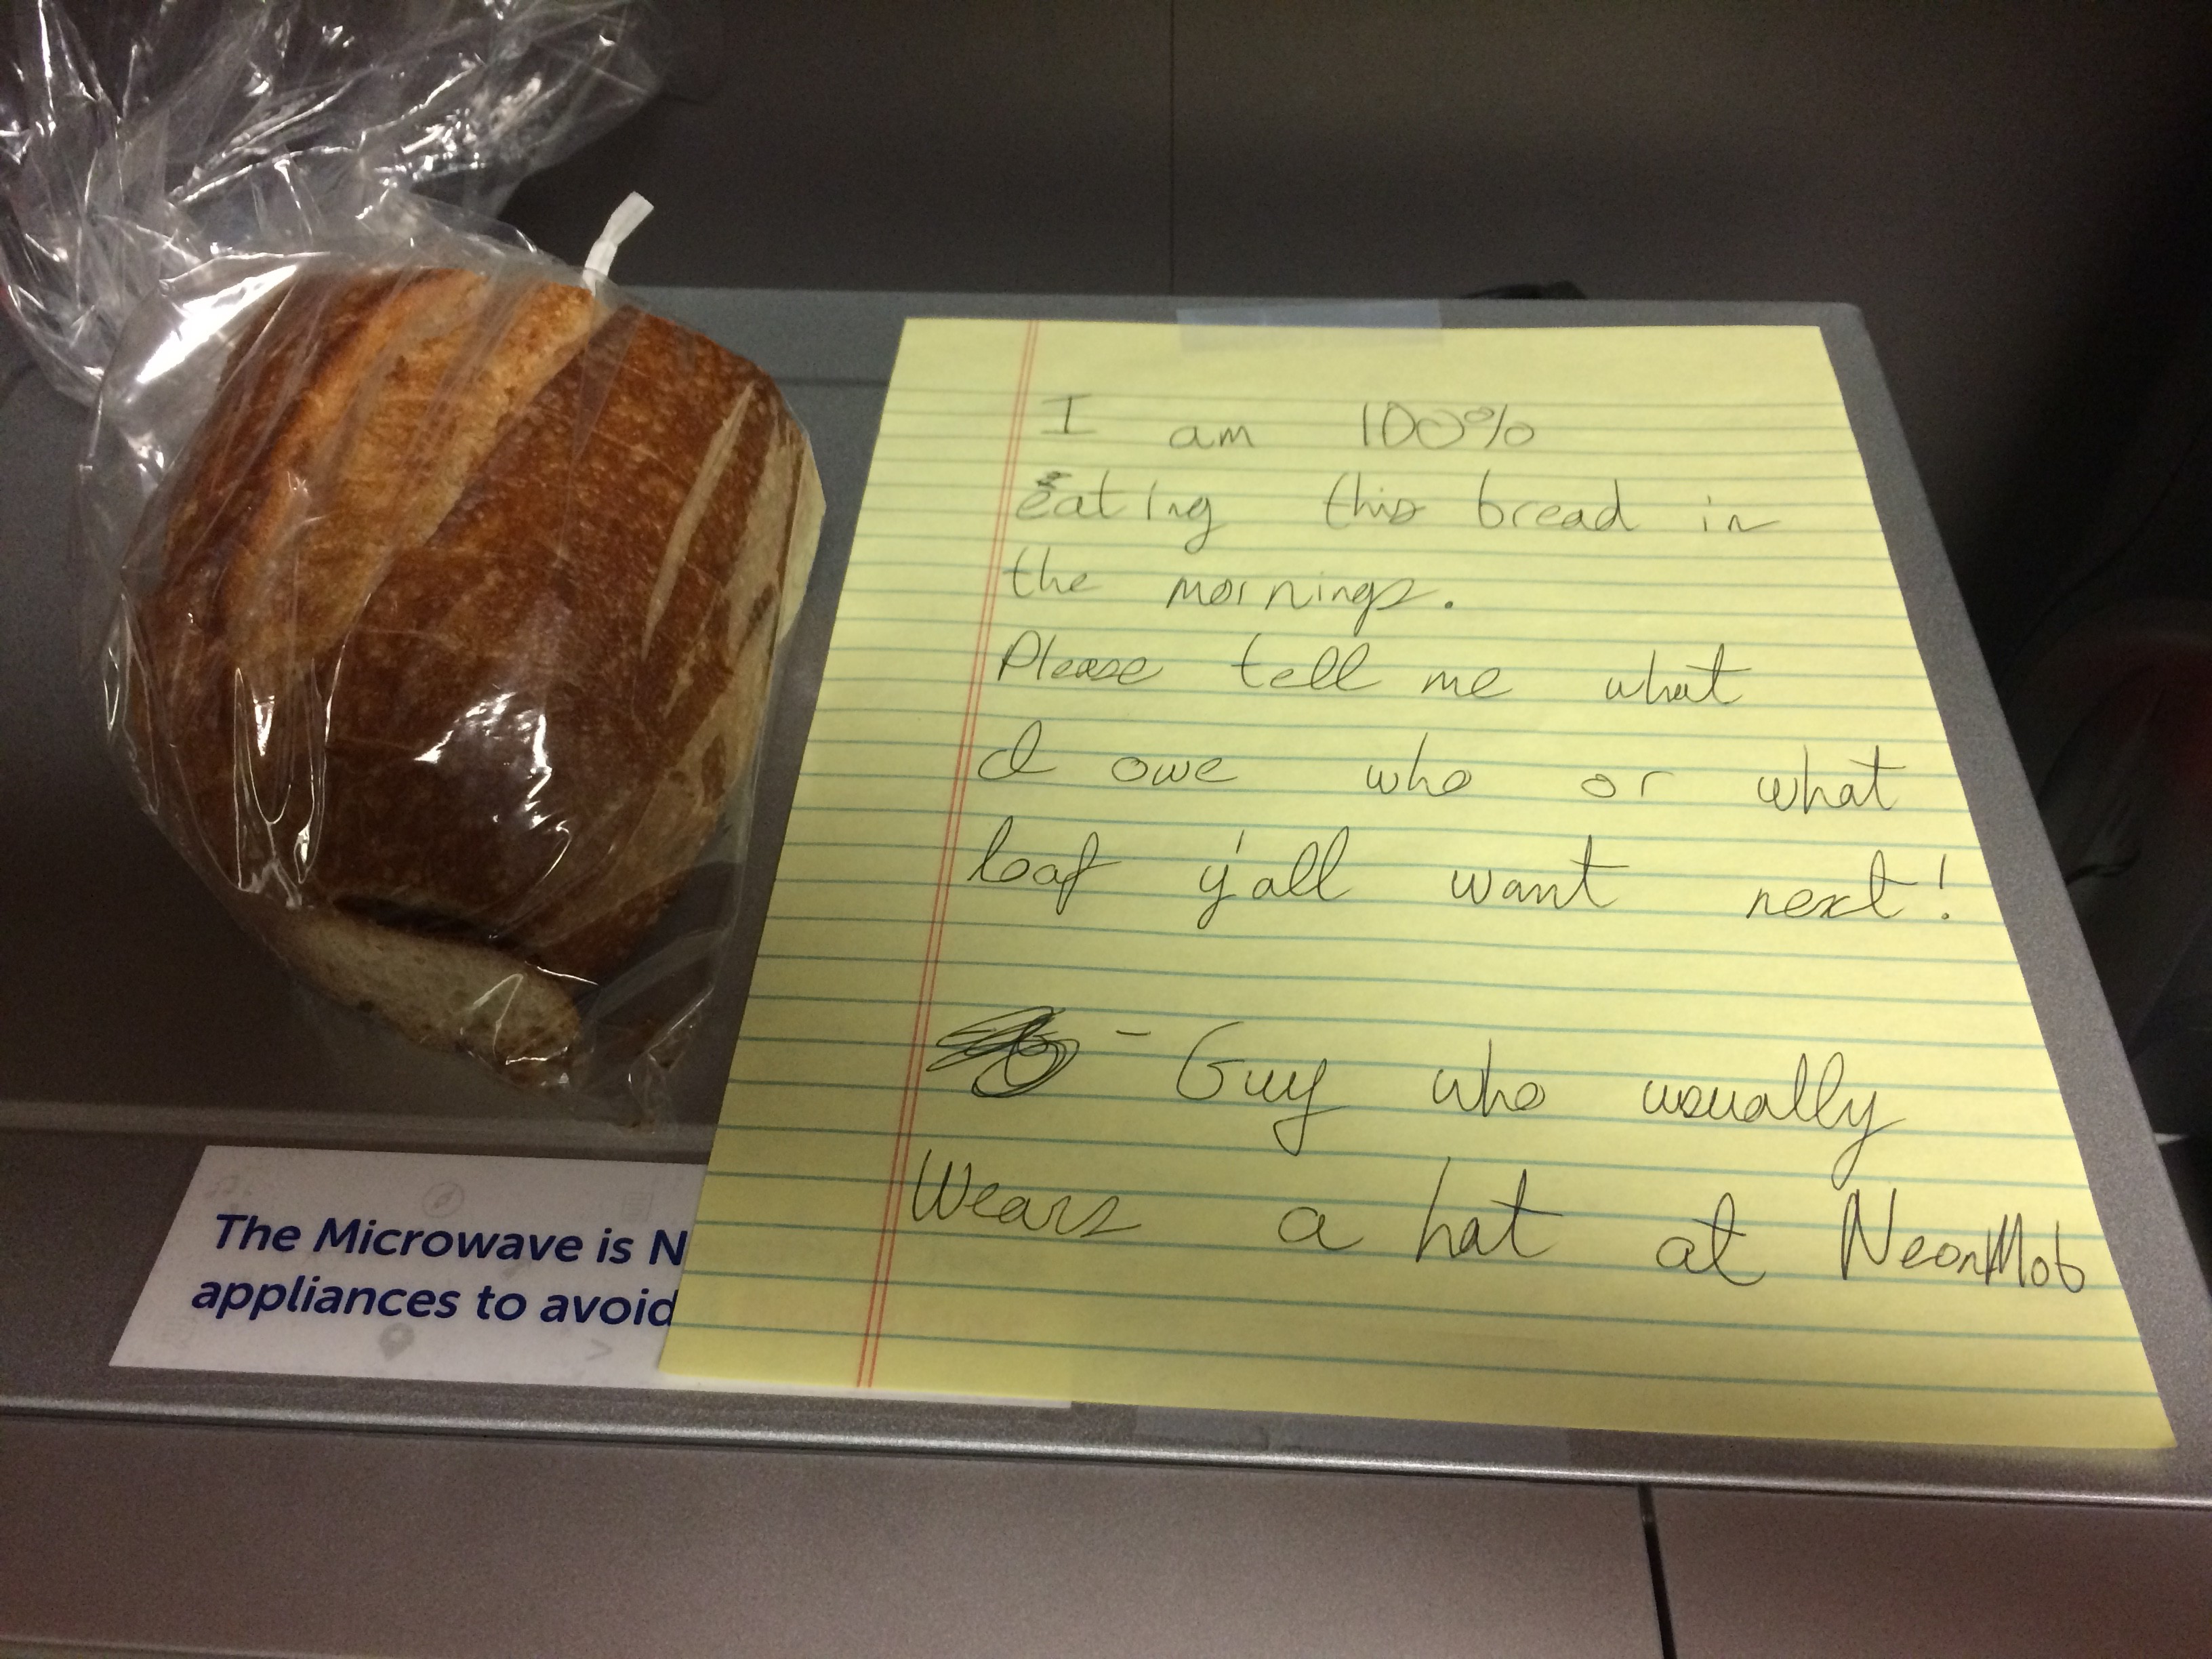 I am 100%
eating this bread in
the mornings.
Please tell me what
I owe who or what
loaf y'all want next!
- Guy who usually
Wears a hat at NeonMob
The Microwave is N
appliances to avoid